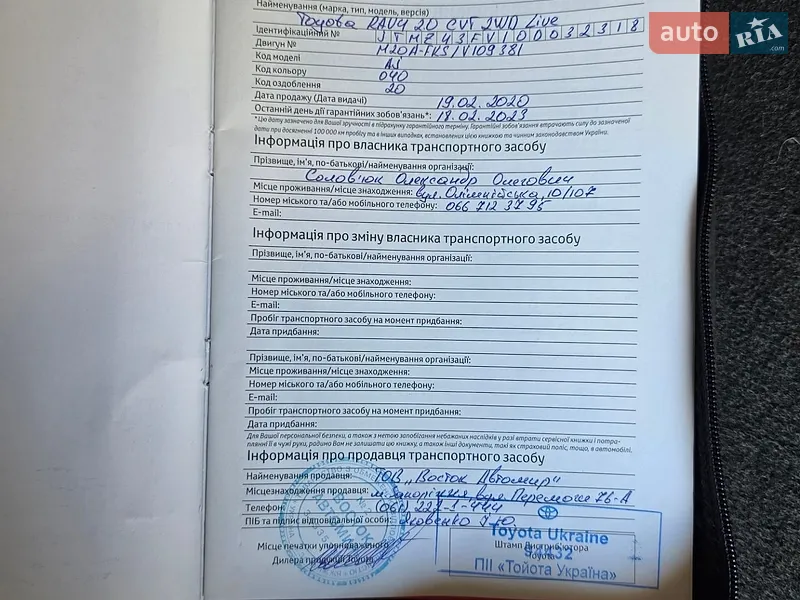 Найменування (марка, тип, модель, версія)
Toyota RAV4 2.0 CVT 2WD Live
Ідентифікаційний № JTMZ43FV100032318
Двигун № M20A-FKS/V109381
Код моделі AJ
Код кольору 040
Код оздоблення 20
Дата продажу (Дата видачі) 19.02.2020
Останній день дії гарантійних зобов'язань*: 18.02.2023
*Цю дату зазначено для Вашої зручності в підрахунку гарантійного терміну. Гарантійні зобов'язання втрачають силу до зазначеної
дати при досягненні 100 000 км пробігу та в інших випадках, встановлених цією книжкою та чинним законодавством України.
Інформація про власника транспортного засобу
Прізвище, ім'я, по-батькові/найменування організації:
Солов'юк Олександр Олегович
Місце проживання/місце знаходження: вул. Олімпійська, 10/107
Номер міського та/або мобільного телефону: 066 712 37 95
E-mail:
Інформація про зміну власника транспортного засобу
Прізвище, ім'я, по-батькові/найменування організації:
Місце проживання/місце знаходження:
Номер міського та/або мобільного телефону:
E-mail:
Пробіг транспортного засобу на момент придбання:
Дата придбання:
Прізвище, ім'я, по-батькові/найменування організації:
Місце проживання/місце знаходження:
Номер міського та/або мобільного телефону:
E-mail:
Пробіг транспортного засобу на момент придбання:
Дата придбання:
Для Вашої персональної безпеки, а також з метою запобігання небажаних наслідків у разі втрати сервісної книжки і потра-
плянні її в чужі руки, радимо Вам не залишати цю книжку, а також інші документи, такі як страховий поліс, тощо, в автомобілі.
Інформація про продавця транспортного засобу
Найменування продавця: ТОВ „Восток Автомир"
Місцезнаходження продавця: м. Запоріжжя вул. Перемоги 76-А
Телефон: (061)
ПІБ та підпис відповідальної особи: Яковенко
Місце печатки уповноваженого
Дилера продукції Toyota
ВОСТОК
Toyota Ukraine
Штамп Дистриб'ютора
Toyota
ПІІ «Тойота Україна»
auto RIA .com